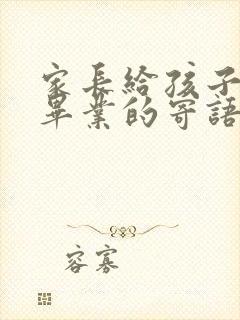 家长給孩子
畢業的寄語
容寡